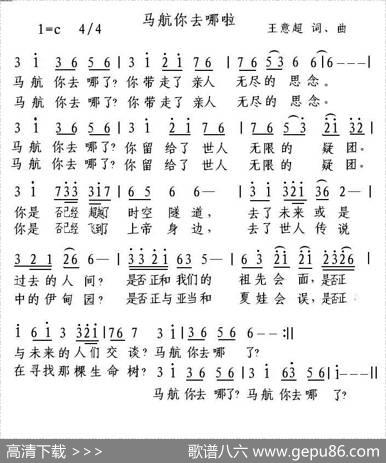 马航你去哪啦
1=c 4/4 王意超 词、曲
3 i 3 6 5 6 | 3 i 2 1 7 6 | 7 6 5 3 2 6 | 6 i - - - |
马航你去哪了?你带走了亲人 无尽的思念。
马航你去哪了?你带走了亲人 无尽的思念。
3 i 3 6 5 6 | 3 i 2 1 7 6 | 7 6 5 3 2 i 3 2 |
马航你去哪了?你留给了世人 无限的 疑团。
马航你去哪了?你留给了世人 无限的 疑团。
你是 否已经 时空隧道, 去了未来或是
你是 否已经 飞到了 上帝身边, 去了世人传说
3 2 1 2 6 6 —
过去的人间? 是否正和我们的 祖先会面,是否正
中的伊甸园? 是否正与亚当和 夏娃会误,是否正
i 6 i 3 3 2 i | 7 6 7 3 i | 3 6 5 6 6 - - :||
与未来的人们交谈?马航你去哪 了?
在寻找那棵生命树? 3 i | 3 6 5 6 | 3 i 6 3 5 6 | i - - ||
马航你去哪了?马航你去哪 了?
高清下载 >>> 歌谱八六 www.gepu86.com